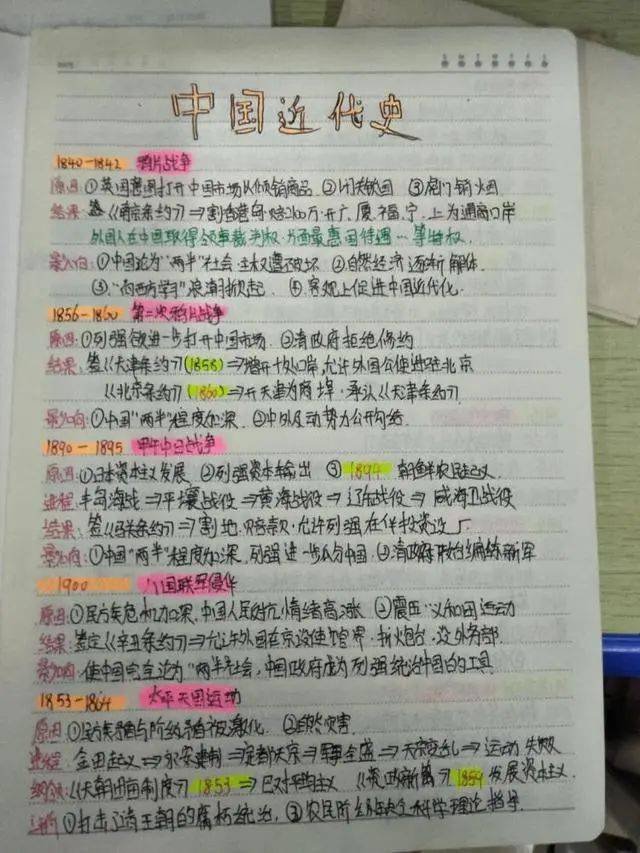 中国近代史
1840-1842 鸦片战争
原因:①英国意图打开中国市场以倾销商品 ②闭关锁国 ③虎门销烟
结果:签《南京条约》⇒割香港岛·赔2100万·开广、厦、福、宁、上为通商口岸
外国人在中国取得领事裁判权、片面最惠国待遇…等特权
影响:①中国沦为“两半”社会·主权遭破坏 ②自然经济逐渐解体
③“向西方学习”浪潮掀起 ④客观上促进中国近代化
1856-1860 第二次鸦片战争
原因:①列强欲进一步打开中国市场 ②清政府拒绝修约
结果:签《天津条约》(1858)⇒增开十处口岸,允许外国公使进驻北京
《北京条约》(1860)⇒开天津为商埠·承认《天津条约》
影响:①中国“两半”程度加深 ②中外反动势力公开勾结
1890-1895 甲午中日战争
原因:①日本资本主义发展 ②列强资本输出 ③1894 朝鲜农民起义
进程:丰岛海战⇒平壤战役⇒黄海战役⇒辽东战役⇒威海卫战役
结果:签《马关条约》⇒割地·赔款·允许列强在华投资设厂
影响:①中国“两半”程度加深,列强进一步瓜分中国 ②清政府开始编练新军
1900 八国联军侵华
原因:①民族危机加深,中国人民反抗情绪高涨 ②镇压义和团运动
结果:签定《辛丑条约》⇒允许外国在京设使馆界·拆炮台·设外务部
影响:使中国完全沦为“两半”社会,中国政府成为列强统治中国的工具
1853-1864 太平天国运动
原因:①民族矛盾与阶级矛盾被激化 ②自然灾害
进程:金田起义⇒永安建制⇒定都天京⇒军事全盛⇒天京变乱⇒运动失败
纲领:《天朝田亩制度》1853⇒绝对平均主义 《资政新篇》1859 发展资本主义
评价 ①打击了清王朝的腐朽统治 ②农民阶级缺乏科学理论指导